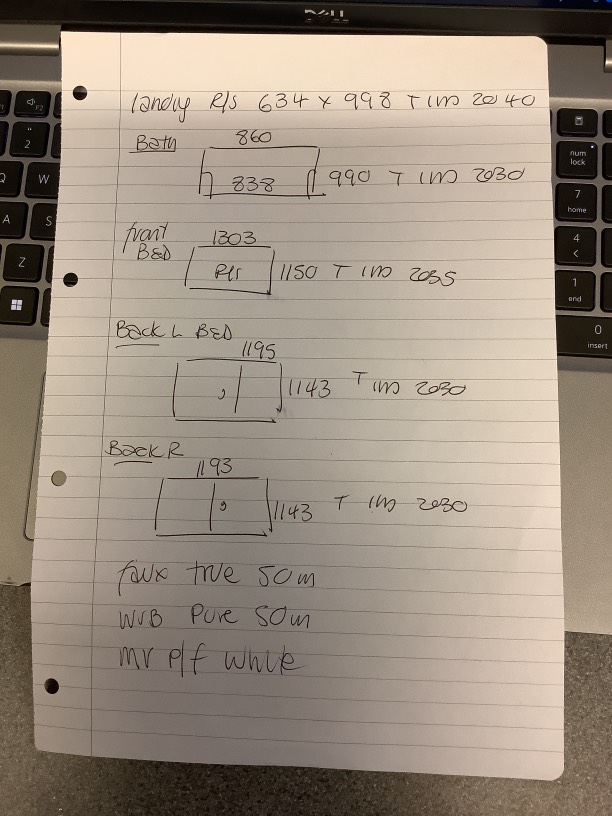 DELL
landing R/s 634 x 998 T IM 2040
Bath
860
838
990 T IM 2030
front
BED
1303
R/s
1150 T IM 2035
Back L BED
1195
1143 T IM 2030
Back R
1193
1143 T IM 2030
faux true 50m
WVB Pure 50m
mr p/f white
num
lock
7
home
4
1
end
0
insert
2
W
A
S
Z